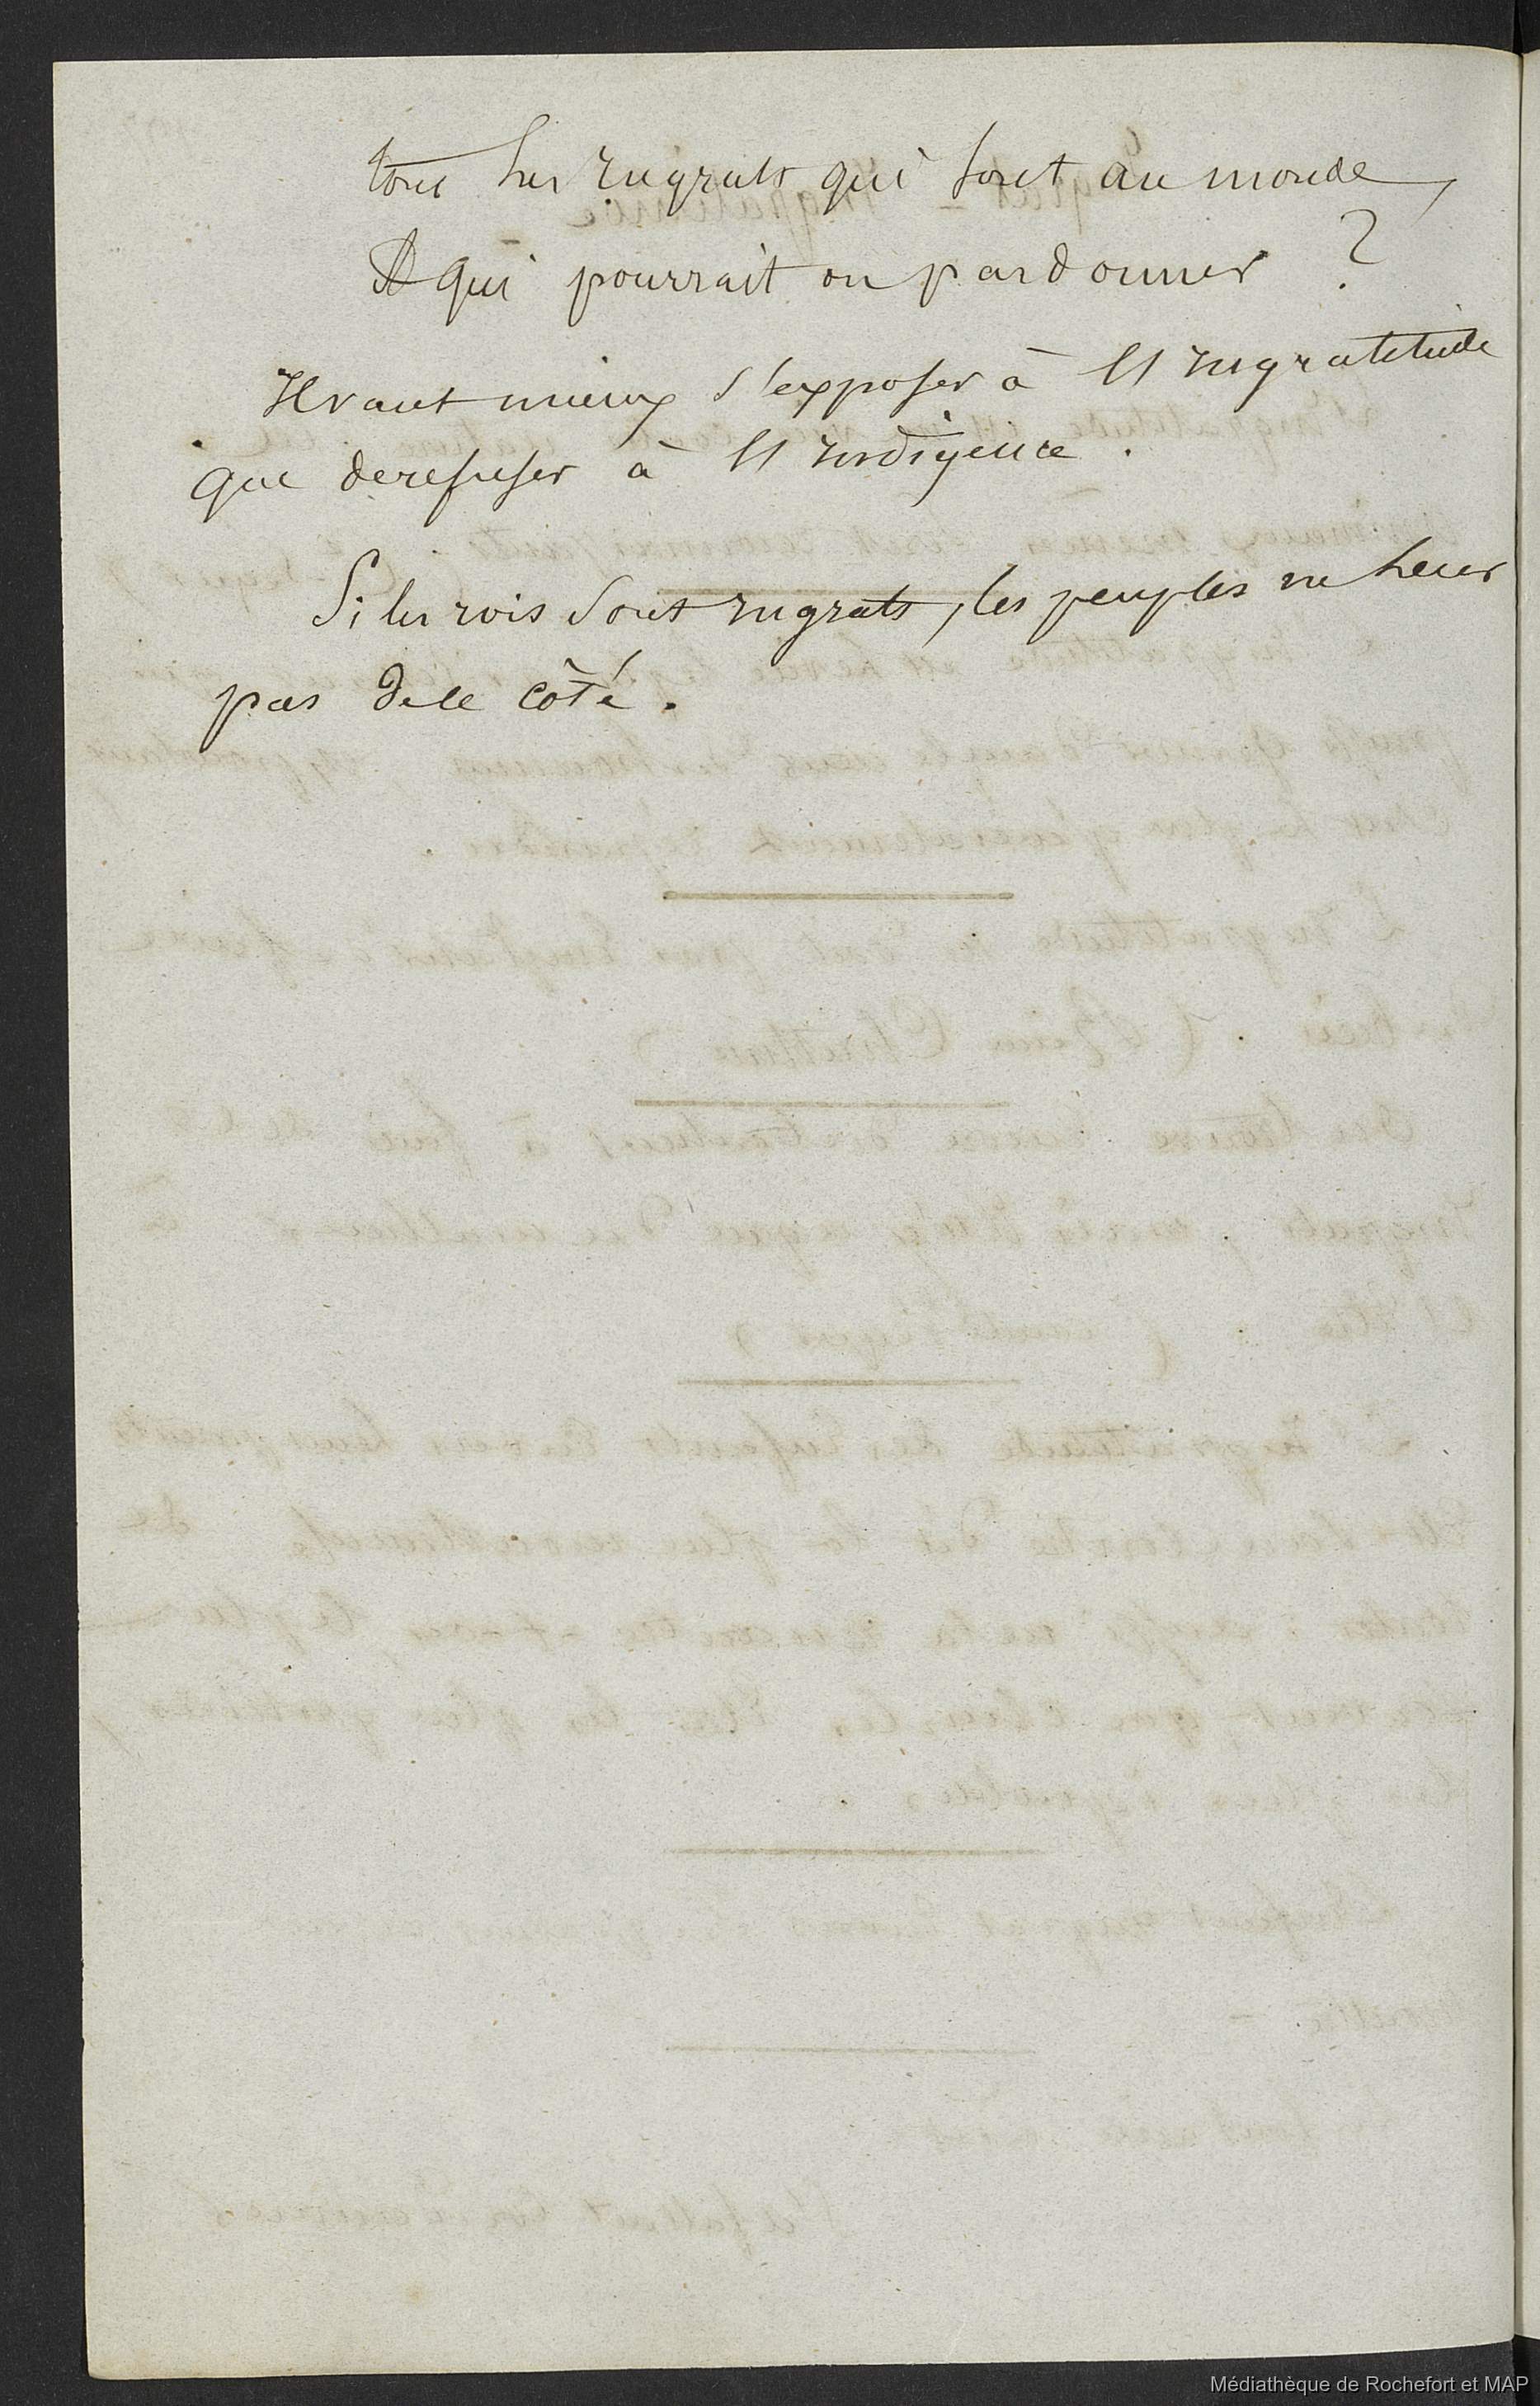 tous les ingrats qui sont au monde,
A qui pourrait on pardonner ?
Il vaut mieux s'exposer à l'Ingratitude
que de refuser à l'Indigence .
Si les rois sont ingrats, les peuples en
pas de ce côté .
Médiathèque de Rochefort et MAP